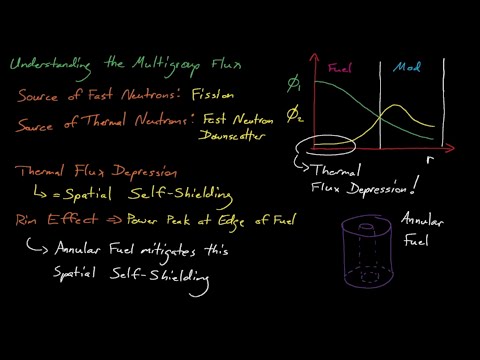 Understanding the Multigroup Flux
Source of Fast Neutrons: Fission
Source of Thermal Neutrons: Fast Neutron
Downscatter
Thermal Flux Depression
↳ = Spatial Self-Shielding
Rim Effect ⇒ Power Peak at Edge of Fuel
↳ Annular Fuel mitigates this
Spatial Self-Shielding
Fuel
Mod
ϕ1
ϕ2
r
↳ Thermal
Flux Depression!
Annular
Fuel